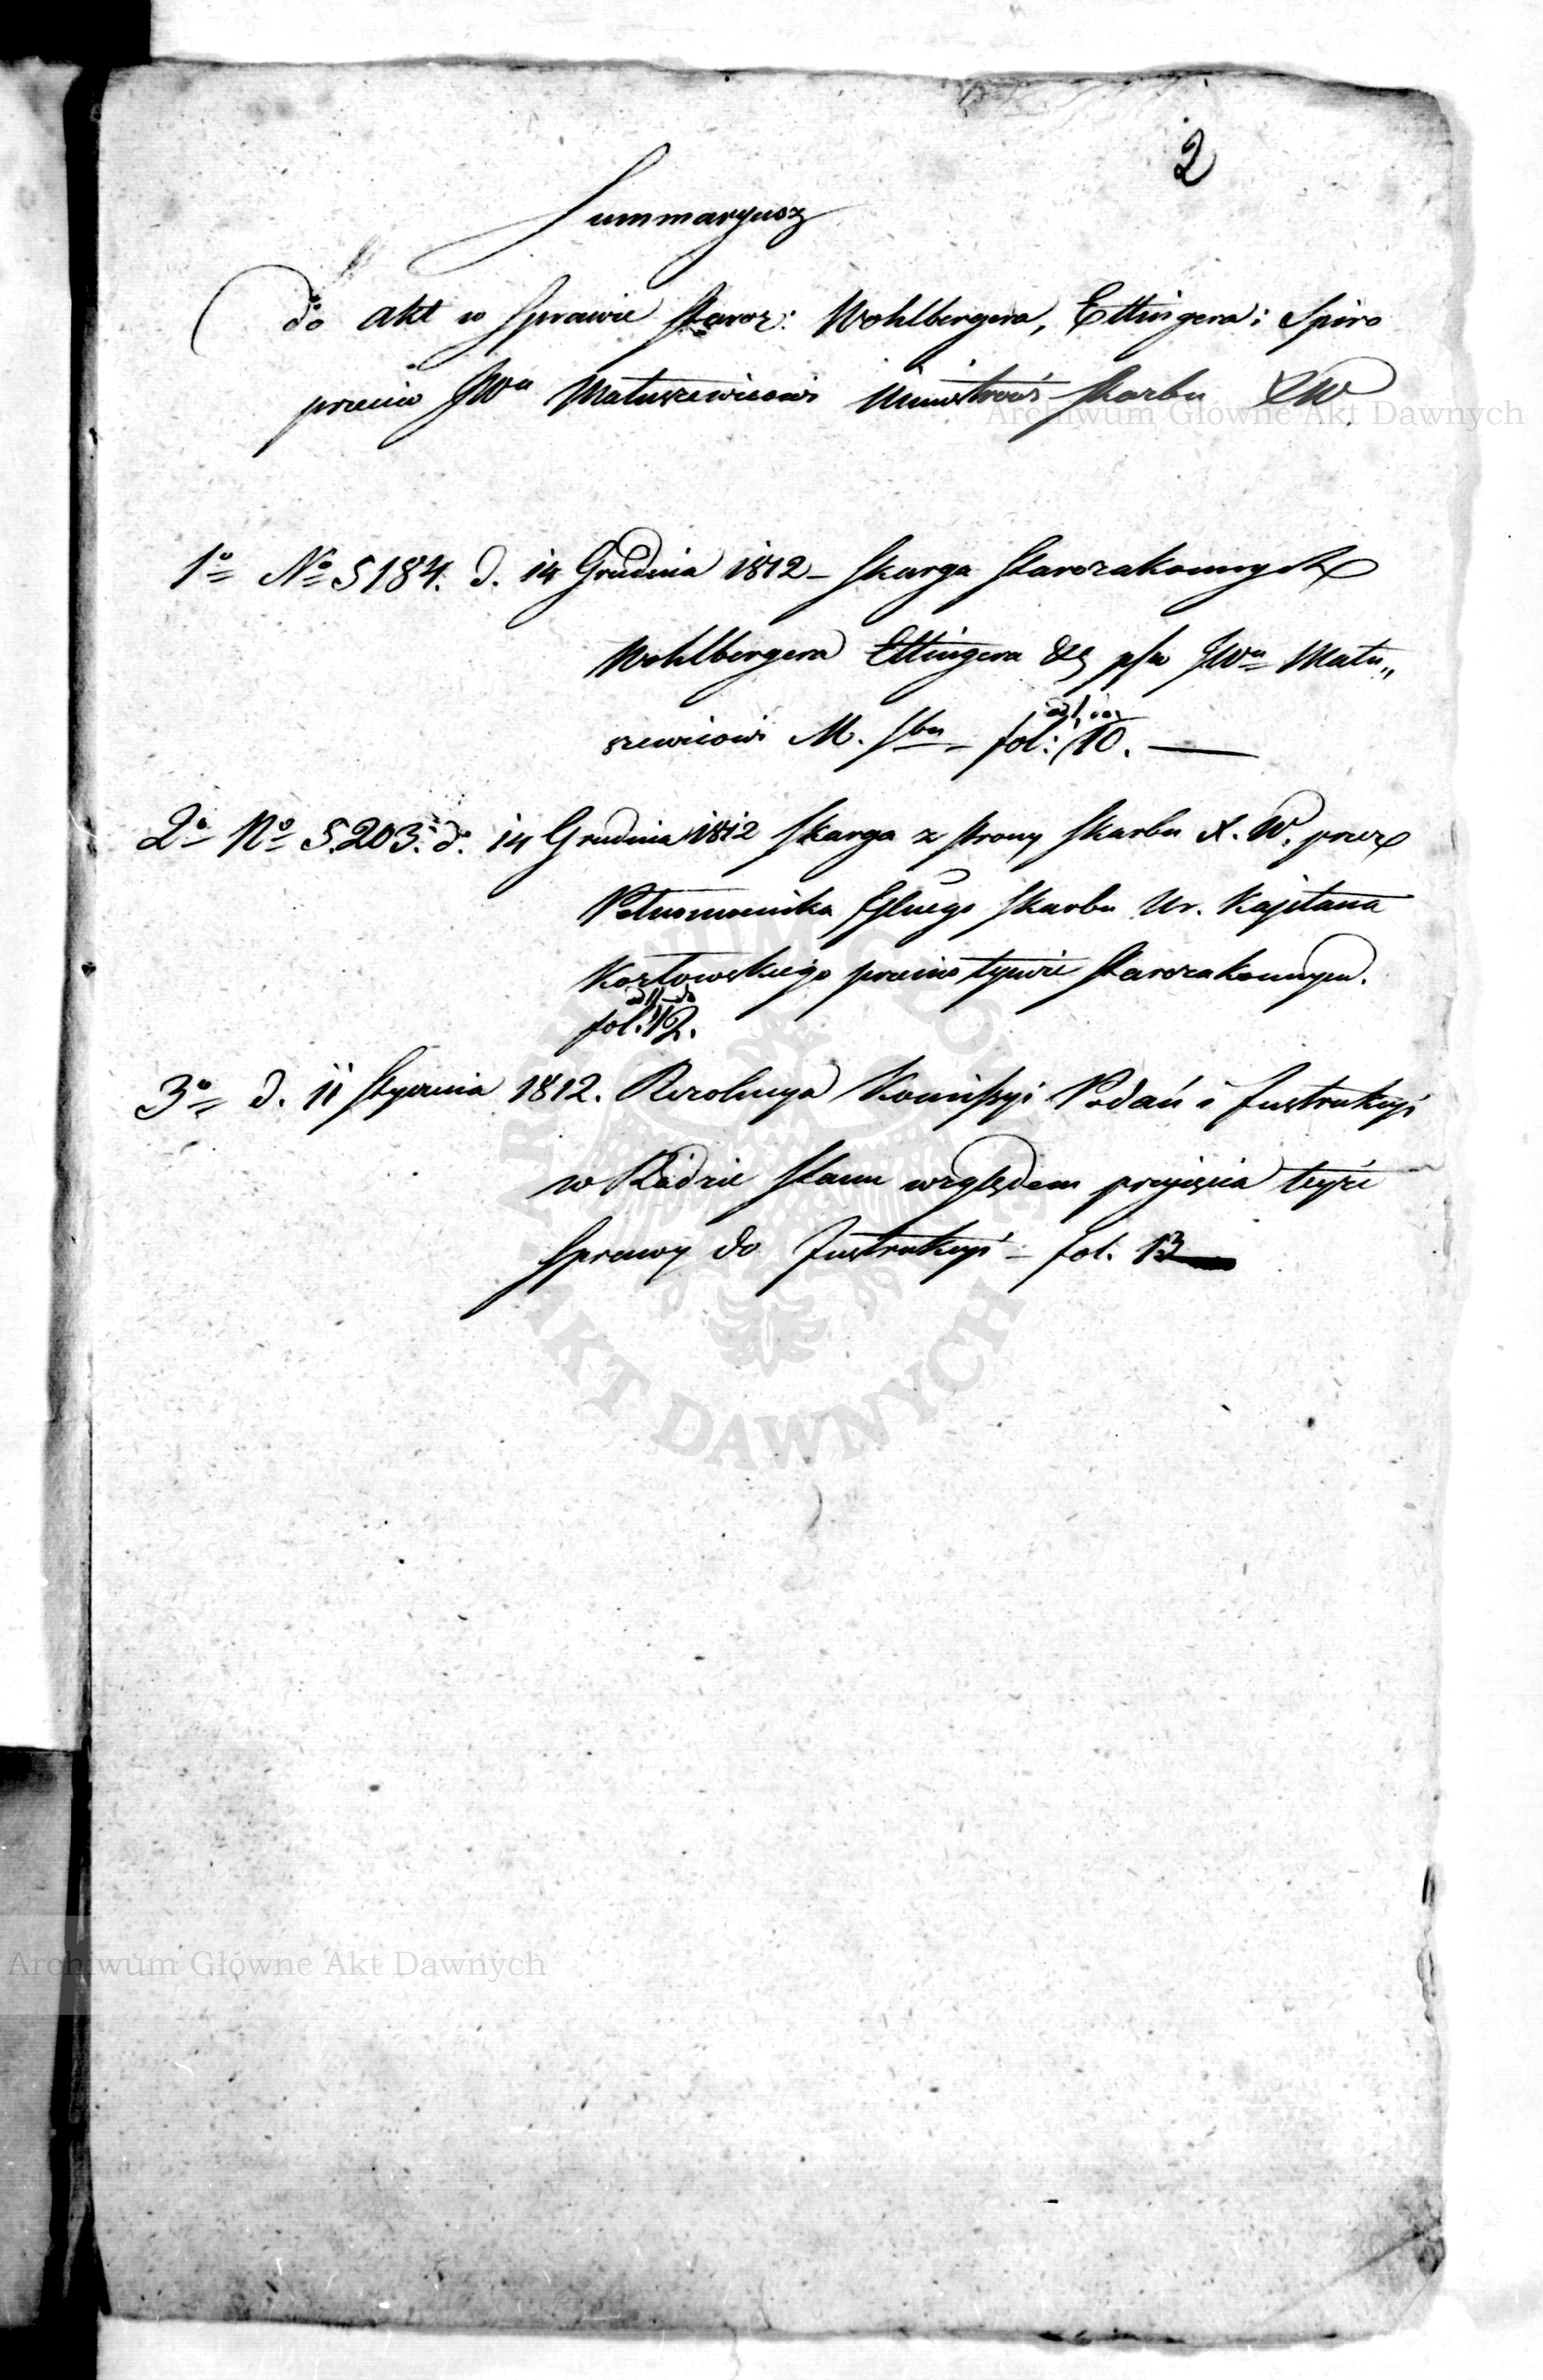 2
Summaryusz
do akt w Sprawie Staroz: Wohlbergera, Ettingera i Spiro
przeciw JWu Matuszewicowi Ministrowi Skarbu XW
Archiwum Główne Akt Dawnych
1o No 5184. d. 14 Grudnia 1812 - Skarga Starozakonnych
Wohlbergera Ettingera &c p/w JWu Matu„
szewicowi M. Sbu - fol: 10. —
2o No 5203. d. 14 Grudnia 1812 Skarga z strony Skarbu X. W. przez
Pełnomocnika Jgluego Skarbu Ur. Kajetana
Kozłowskiego przeciw tymże Starozakonnym.
od 11 do
fol. 12.
3o d. 11 Stycznia 1812. Rezolucya Komissyi Podań i Instrukcyi
w Radzie Stanu względem przyięcia teyże
Sprawy do Instrukcyi - fol. 13
ARCHIWUM GŁÓWNE
AKT DAWNYCH
Archiwum Główne Akt Dawnych